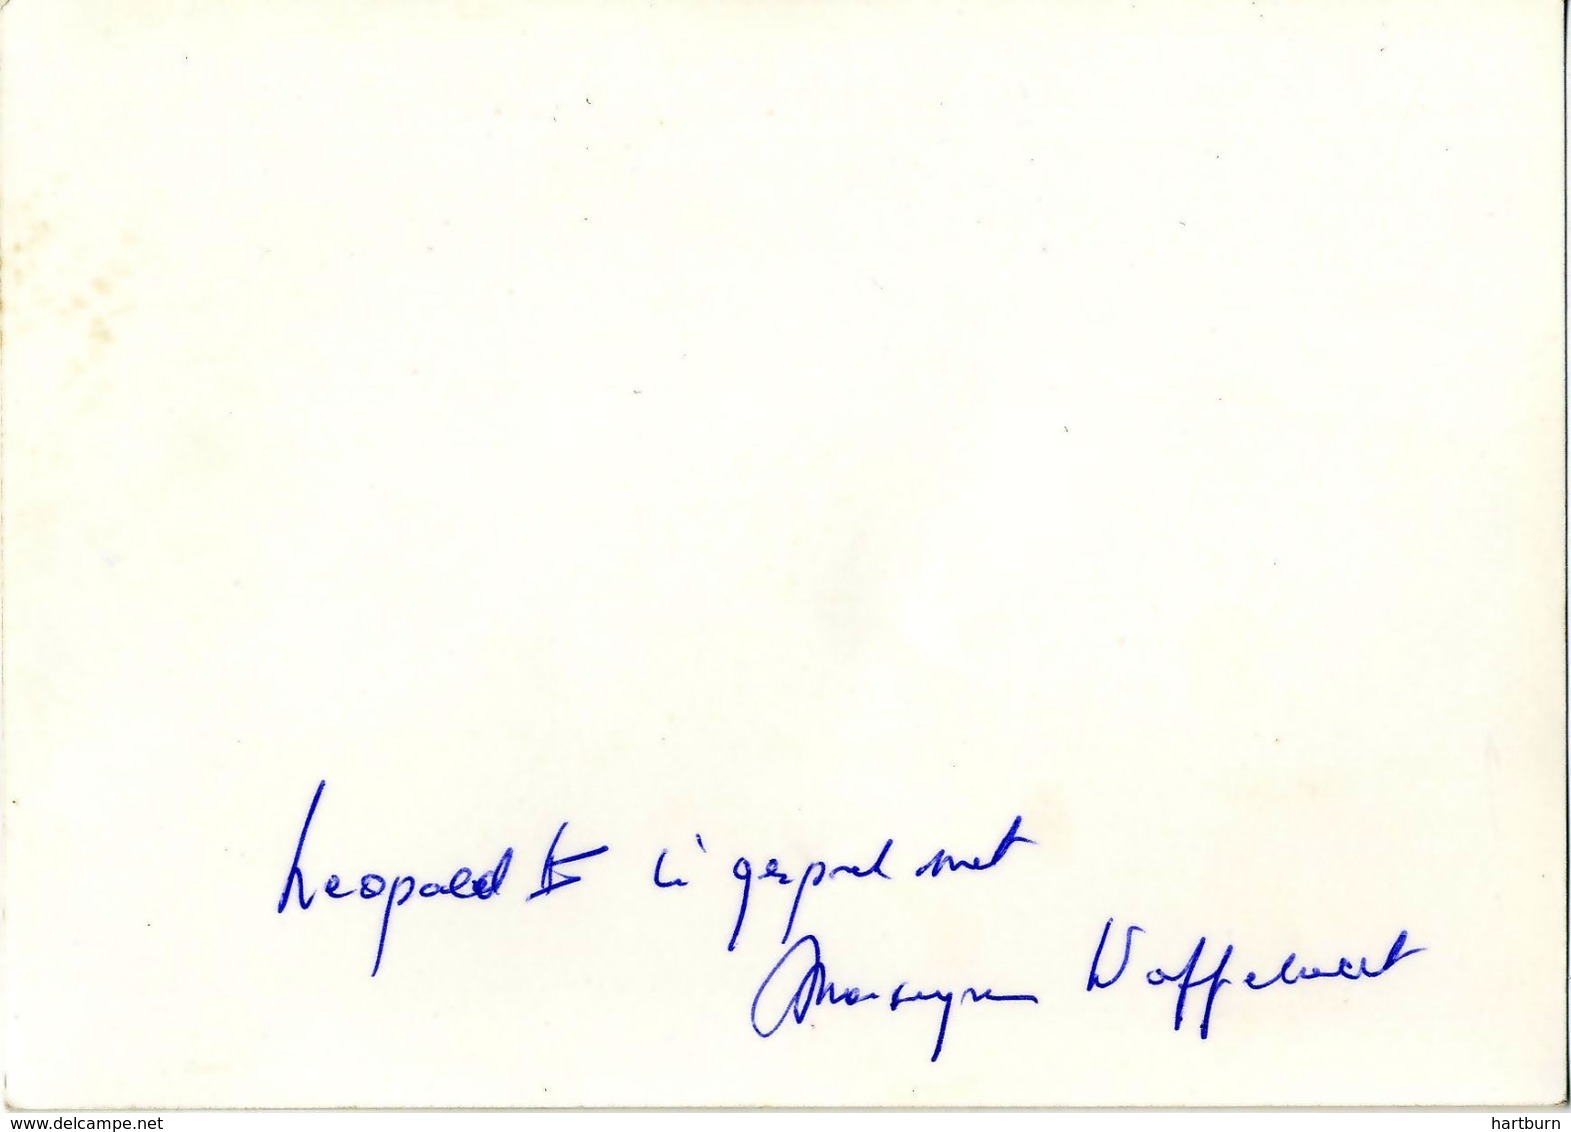 Leopold III in gesprek met
Monseigneur Waffelaert
www.delcampe.net
hartburn